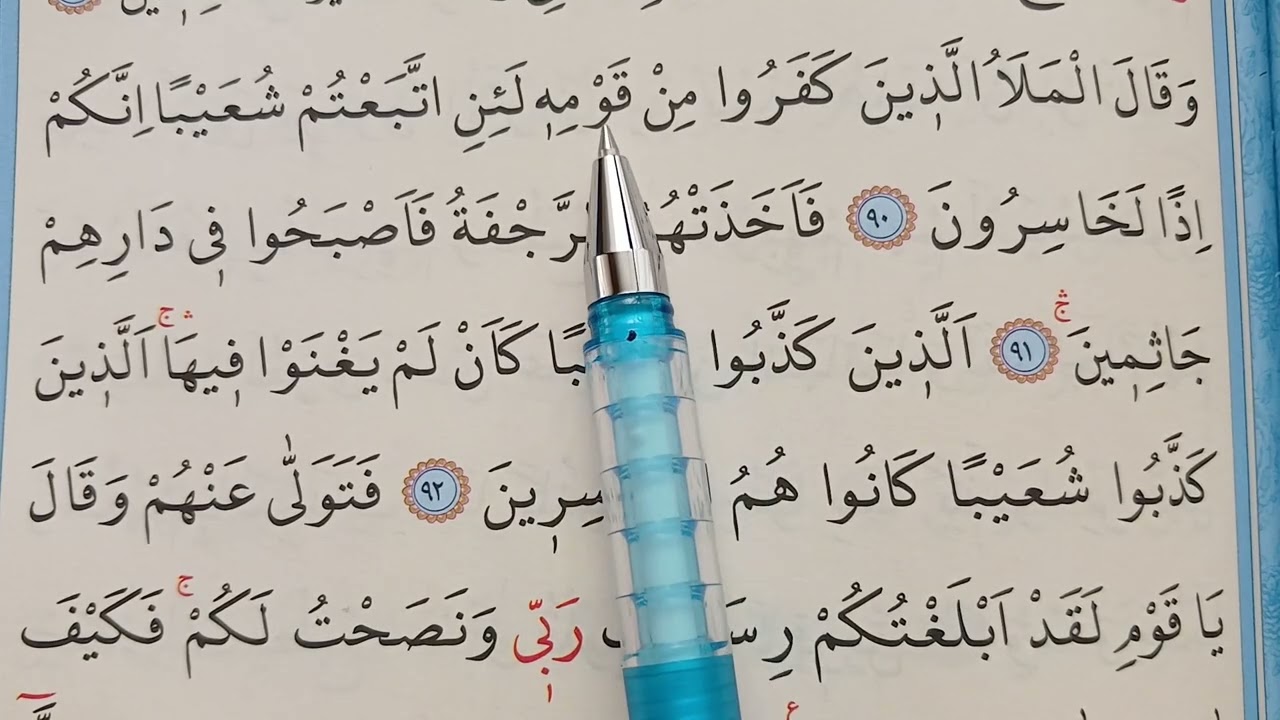 وَقَالَ الْمَلَاُ الَّذٖينَ كَفَرُوا مِنْ قَوْمِهٖ لَئِنِ اتَّبَعْتُمْ شُعَيْبًا اِنَّكُمْ
اِذًا لَخَاسِرُونَ ﴿٩٠﴾ فَاَخَذَتْهُمُ الرَّجْفَةُ فَاَصْبَحُوا فٖي دَارِهِمْ
جَاثِمٖينَ ﴿٩١﴾ اَلَّذٖينَ كَذَّبُوا كَاَنْ لَمْ يَغْنَوْا فٖيهَا اَلَّذٖينَ
كَذَّبُوا شُعَيْبًا كَانُوا هُمُ ﴿٩٢﴾ فَتَوَلّٰى عَنْهُمْ وَقَالَ
يَا قَوْمِ لَقَدْ اَبْلَغْتُكُمْ رَبّٖي وَنَصَحْتُ لَكُمْ فَكَيْفَ